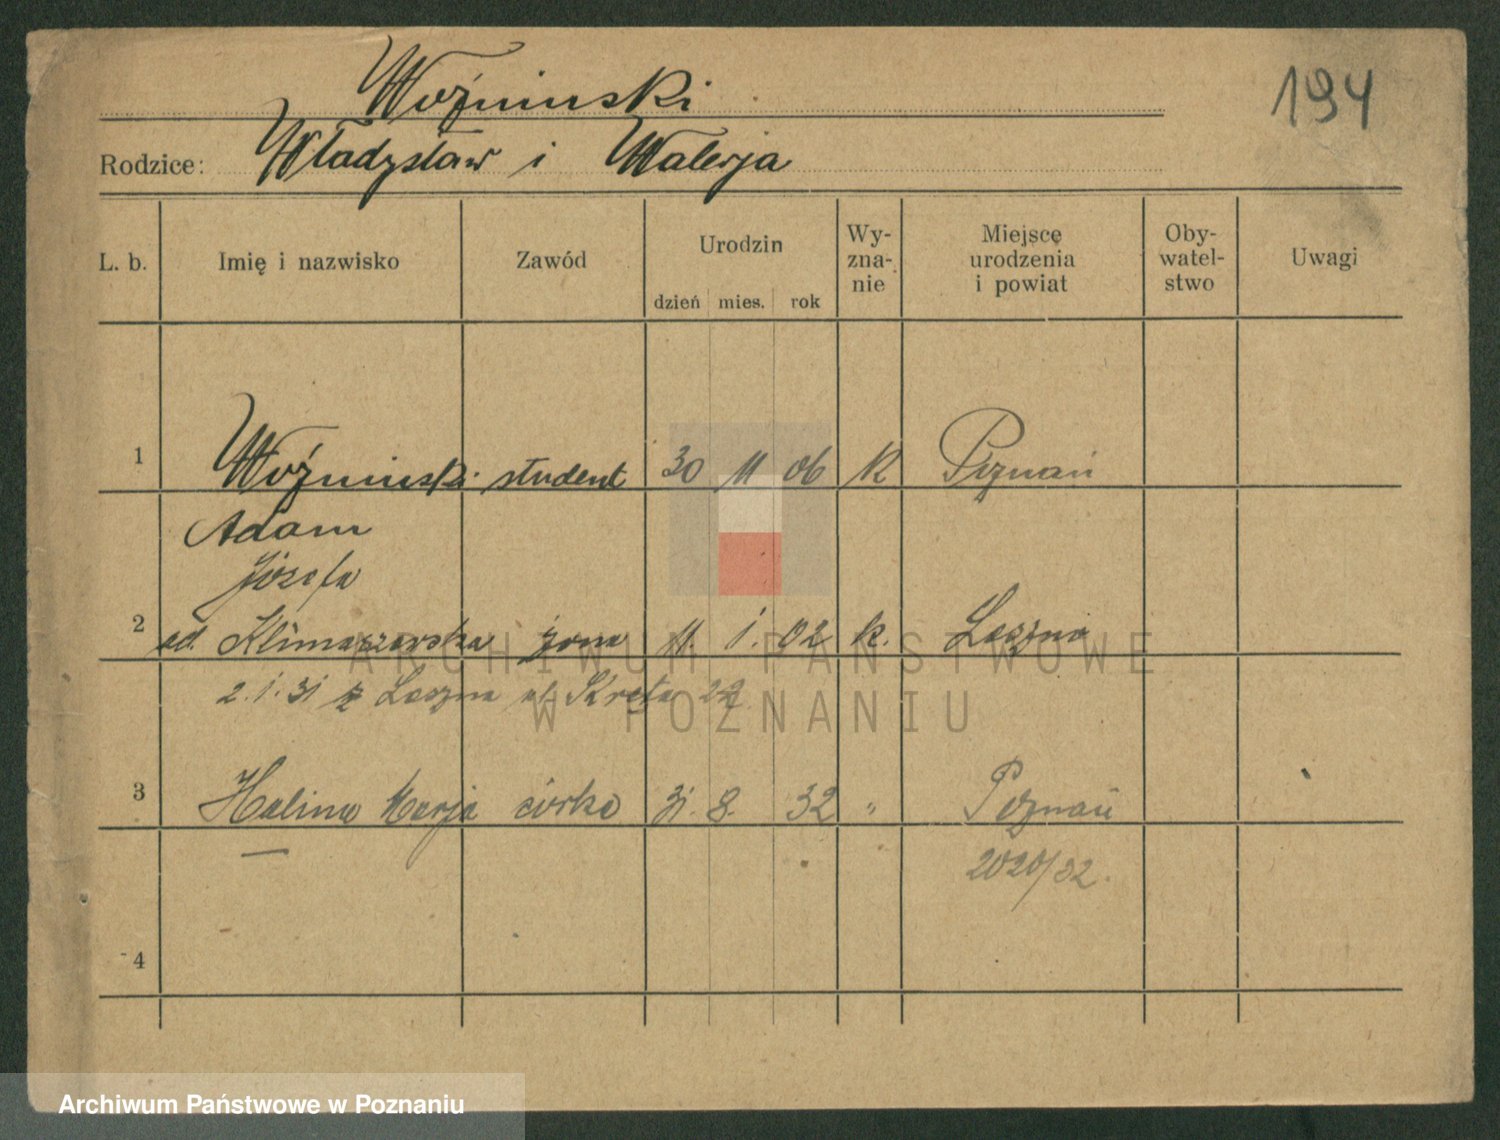 Woźninski
194
Rodzice: Władysław i Walerja
L. b. Imię i nazwisko Zawód Urodzin dzień mies. rok Wy-zna-nie Miejsce urodzenia i powiat Oby-watel-stwo Uwagi
1 Woźninski student 30 11 06 k Poznań
Adam
Józefa
2 od. Klimaszewska żona 11. 1. 02 k. Leszno
2.1.31 z Leszna ul. Kręta 22
ARCHIWUM PAŃSTWOWE
W POZNANIU
3 Halina Marja córka 31. 8. 32 " Poznań
2020/32.
4
Archiwum Państwowe w Poznaniu